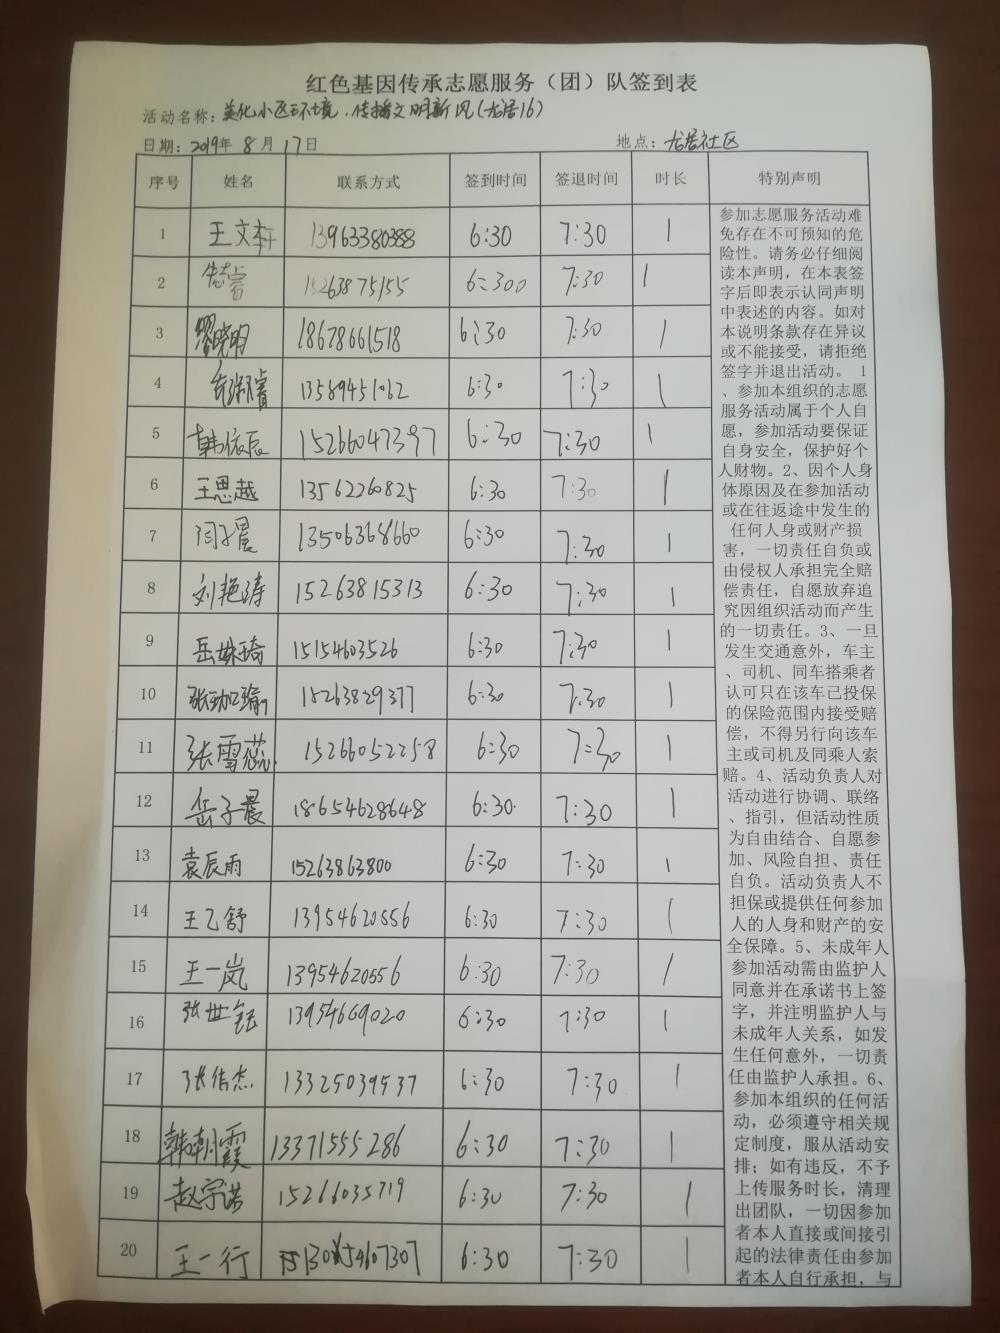 红色基因传承志愿服务（团）队签到表
活动名称：美化小区环境，传播文明新风(龙居16)
日期：2019年 8 月 17日 地点：龙居社区
序号 姓名 联系方式 签到时间 签退时间 时长 特别声明
1 王文轩 13963380388 6:30 7:30 1
2 15263875155 6:300 7:30 1
3 晓明 18678661518 6:30 7:30 1
4 13589451062 6:30 7:30 1
5 韩依辰 15266047397 6:30 7:30 1
6 王思越 13562260825 6:30 7:30 1
7 闫子晨 13506368660 6:30 7:30 1
8 刘艳涛 15263815313 6:30 7:30 1
9 岳姝琦 15154603526 6:30 7:30 1
10 15263829377 6:30 7:30 1
11 张雪蕊 15266052258 6:30 7:30 1
12 岳子晨 18654628648 6:30 7:30 1
13 袁辰雨 15263863800 6:30 7:30 1
14 王乙舒 13954620556 6:30 7:30 1
15 王一岚 13954620556 6:30 7:30 1
16 张世钰 13954669020 6:30 7:30 1
17 张伟杰 13325039537 6:30 7:30 1
18 韩朝霞 13371555286 6:30 7:30 1
19 赵宗诺 15266035719 6:30 7:30 1
20 王一行 6:30 7:30 1
参加志愿服务活动难
免存在不可预知的危
险性。请务必仔细阅
读本声明，在本表签
字后即表示认同声明
中表述的内容。如对
本说明条款存在异议
或不能接受，请拒绝
签字并退出活动。 1
、参加本组织的志愿
服务活动属于个人自
愿，参加活动要保证
自身安全，保护好个
人财物。2、因个人身
体原因及在参加活动
或在往返途中发生的
任何人身或财产损
害，一切责任自负或
由侵权人承担完全赔
偿责任，自愿放弃追
究因组织活动而产生
的一切责任。3、一旦
发生交通意外，车主
、司机、同车搭乘者
认可只在该车已投保
的保险范围内接受赔
偿，不得另行向该车
主或司机及同乘人索
赔。4、活动负责人对
活动进行协调、联络
、指引，但活动性质
为自由结合、自愿参
加、风险自担、责任
自负。活动负责人不
担保或提供任何参加
人的人身和财产的安
全保障。5、未成年人
参加活动需由监护人
同意并在承诺书上签
字，并注明监护人与
未成年人关系，如发
生任何意外，一切责
任由监护人承担。6、
参加本组织的任何活
动，必须遵守相关规
定制度，服从活动安
排；如有违反，不予
上传服务时长，清理
出团队，一切因参加
者本人直接或间接引
起的法律责任由参加
者本人自行承担，与